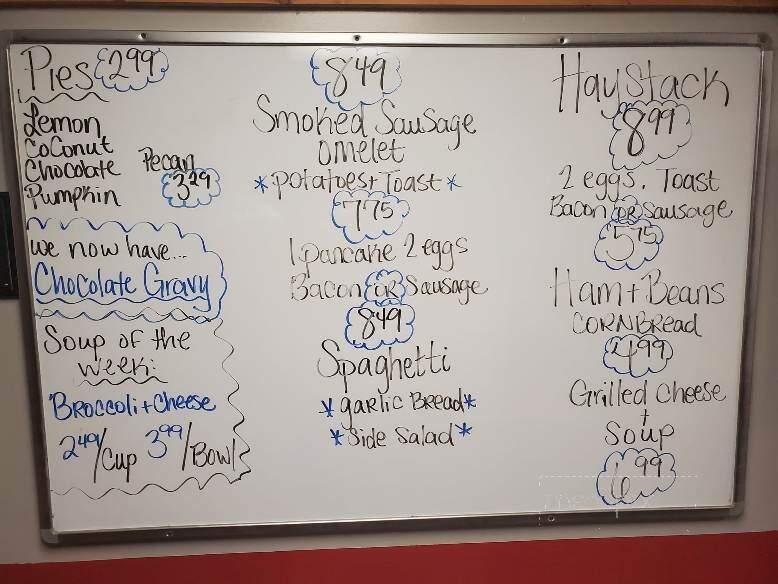 Pies 2.99
Lemon
Coconut
Chocolate
Pumpkin
Pecan
3.29
we now have...
Chocolate Gravy
Soup of the
week:
Broccoli + Cheese
2.49/Cup 3.99/Bowl
8.49
Smoked Sausage
omelet
*potatoes + Toast*
7.75
1 pancake 2 eggs
Bacon OR Sausage
8.49
Spaghetti
*garlic Bread*
*Side Salad*
Haystack
8.99
2 eggs. Toast
Bacon OR Sausage
5.75
Ham + Beans
CORNBREAD
4.99
Grilled Cheese
+
Soup
6.99